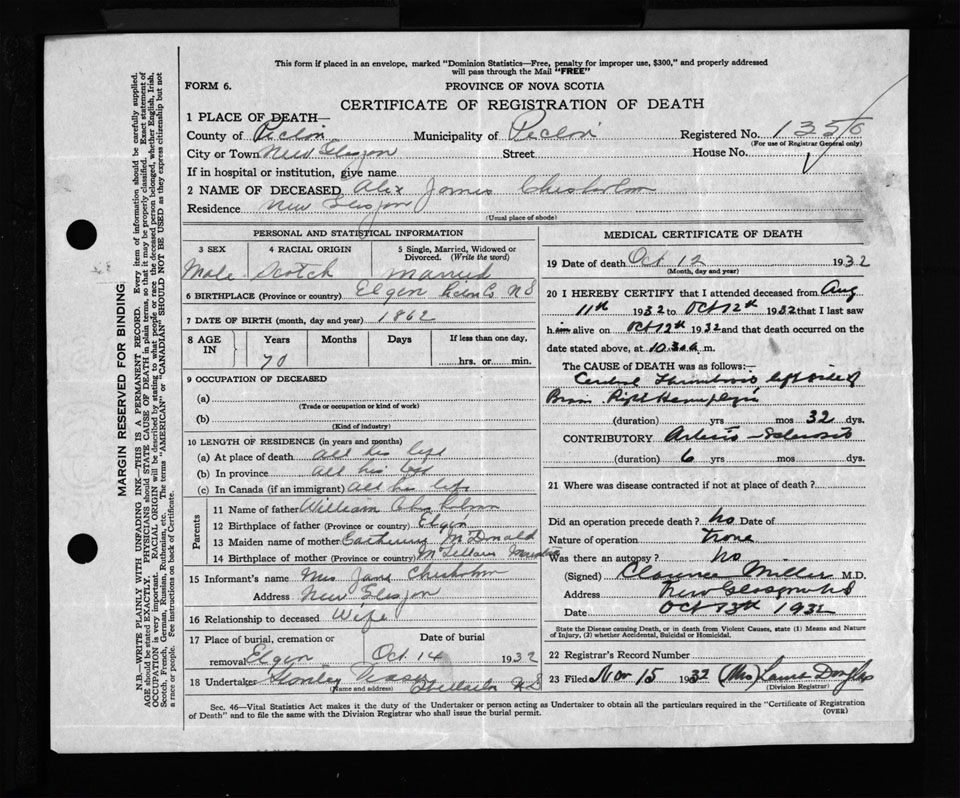 This form if placed in an envelope, marked "Dominion Statistics—Free, penalty for improper use, $300," and properly addressed
will pass through the Mail "FREE"
FORM 6.
PROVINCE OF NOVA SCOTIA
CERTIFICATE OF REGISTRATION OF DEATH
1 PLACE OF DEATH—
County of Pictou Municipality of Pictou Registered No. 1350
(For use of Registrar General only)
City or Town New Glasgow Street House No.
If in hospital or institution, give name
2 NAME OF DECEASED Alix James Chisholm
Residence New Glasgow
(Usual place of abode)
PERSONAL AND STATISTICAL INFORMATION
3 SEX 4 RACIAL ORIGIN 5 Single, Married, Widowed or Divorced. (Write the word)
Male Scotch Married
6 BIRTHPLACE (Province or country) Elgin Pictou Co NS
7 DATE OF BIRTH (month, day and year) 1862
8 AGE IN Years Months Days If less than one day,
70 hrs. or min.
9 OCCUPATION OF DECEASED
(a)
(Trade or occupation or kind of work)
(b)
(Kind of industry)
10 LENGTH OF RESIDENCE (in years and months)
(a) At place of death all his life
(b) In province all his life
(c) In Canada (if an immigrant) all his life
Parents
11 Name of father William Chisholm
12 Birthplace of father (Province or country) Elgin
13 Maiden name of mother Catherine McDonald
14 Birthplace of mother (Province or country) McLellans Mountain
15 Informant's name Mrs Jane Chisholm
Address New Glasgow
16 Relationship to deceased Wife
17 Place of burial, cremation or Date of burial
removal Elgin Oct 14 1932
18 Undertaker Stanley Stellarton NS
(Name and address)
MEDICAL CERTIFICATE OF DEATH
19 Date of death Oct 12 1932
(Month, day and year)
20 I HEREBY CERTIFY that I attended deceased from Aug
11th 1932 to Oct 12th 1932 that I last saw
him alive on Oct 12th 1932 and that death occurred on
date stated above, at 10.30 a.m.
The CAUSE OF DEATH was as follows:—
Cerebral Thrombosis left side of
Brain Right Hemiplegia
(duration) yrs mos 32 dys.
CONTRIBUTORY Arterio-Sclerosis
(duration) 6 yrs mos dys.
21 Where was disease contracted if not at place of death?
Did an operation precede death? No Date of
Nature of operation None
Was there an autopsy? No
(Signed) Clarence Miller M.D.
Address New Glasgow NS
Date Oct 13th 1932
State the Disease causing Death, or in death from Violent Causes, state (1) Means and Nature of Injury, (2) whether Accidental, Suicidal or Homicidal.
22 Registrar's Record Number
23 Filed Nov 15 1932 (Mrs) Laura Douglas
(Division Registrar)
Sec. 46—Vital Statistics Act makes it the duty of the Undertaker or person acting as Undertaker to obtain all the particulars required in the "Certificate of Registration
of Death" and to file the same with the Division Registrar who shall issue the burial permit.
(OVER)
MARGIN RESERVED FOR BINDING.
N.B.—WRITE PLAINLY WITH UNFADING INK—THIS IS A PERMANENT RECORD. Every item of information should be carefully supplied.
AGE should be stated EXACTLY. PHYSICIANS should STATE CAUSE OF DEATH in plain terms, so that it may be properly classified. Exact statement of
OCCUPATION is very important. RACIAL ORIGIN will be described by stating to what people or race the deceased person belonged, whether English, Irish,
Scotch, French, German, Russian, Ruthenian, etc. The terms "AMERICAN" or "CANADIAN" SHOULD NOT BE USED as they express citizenship but not
a race or people. See instructions on back of Certificate.